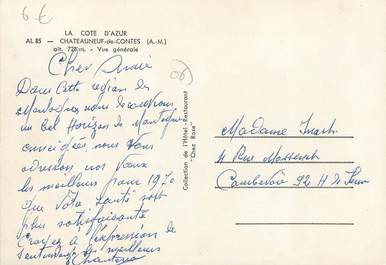 6 €
LA COTE D'AZUR
AL 85 - CHATEAUNEUF-de-CONTES (A.-M.)
alt. 728 m. - Vue générale
Cher
Dans cette région les
nous découvrons
un bel Horizon de Montagne
nous Vous
adressons nos Vœux
les meilleurs pour 1970
que Votre santé soit
plus satisfaisante
Croyez à l'expression de
Sentiments les meilleurs
Collection de l'Hôtel-Restaurant
"Chez Rose"
06
Madame
4 Rue Massenet
Courbevoie 92 H de Seine